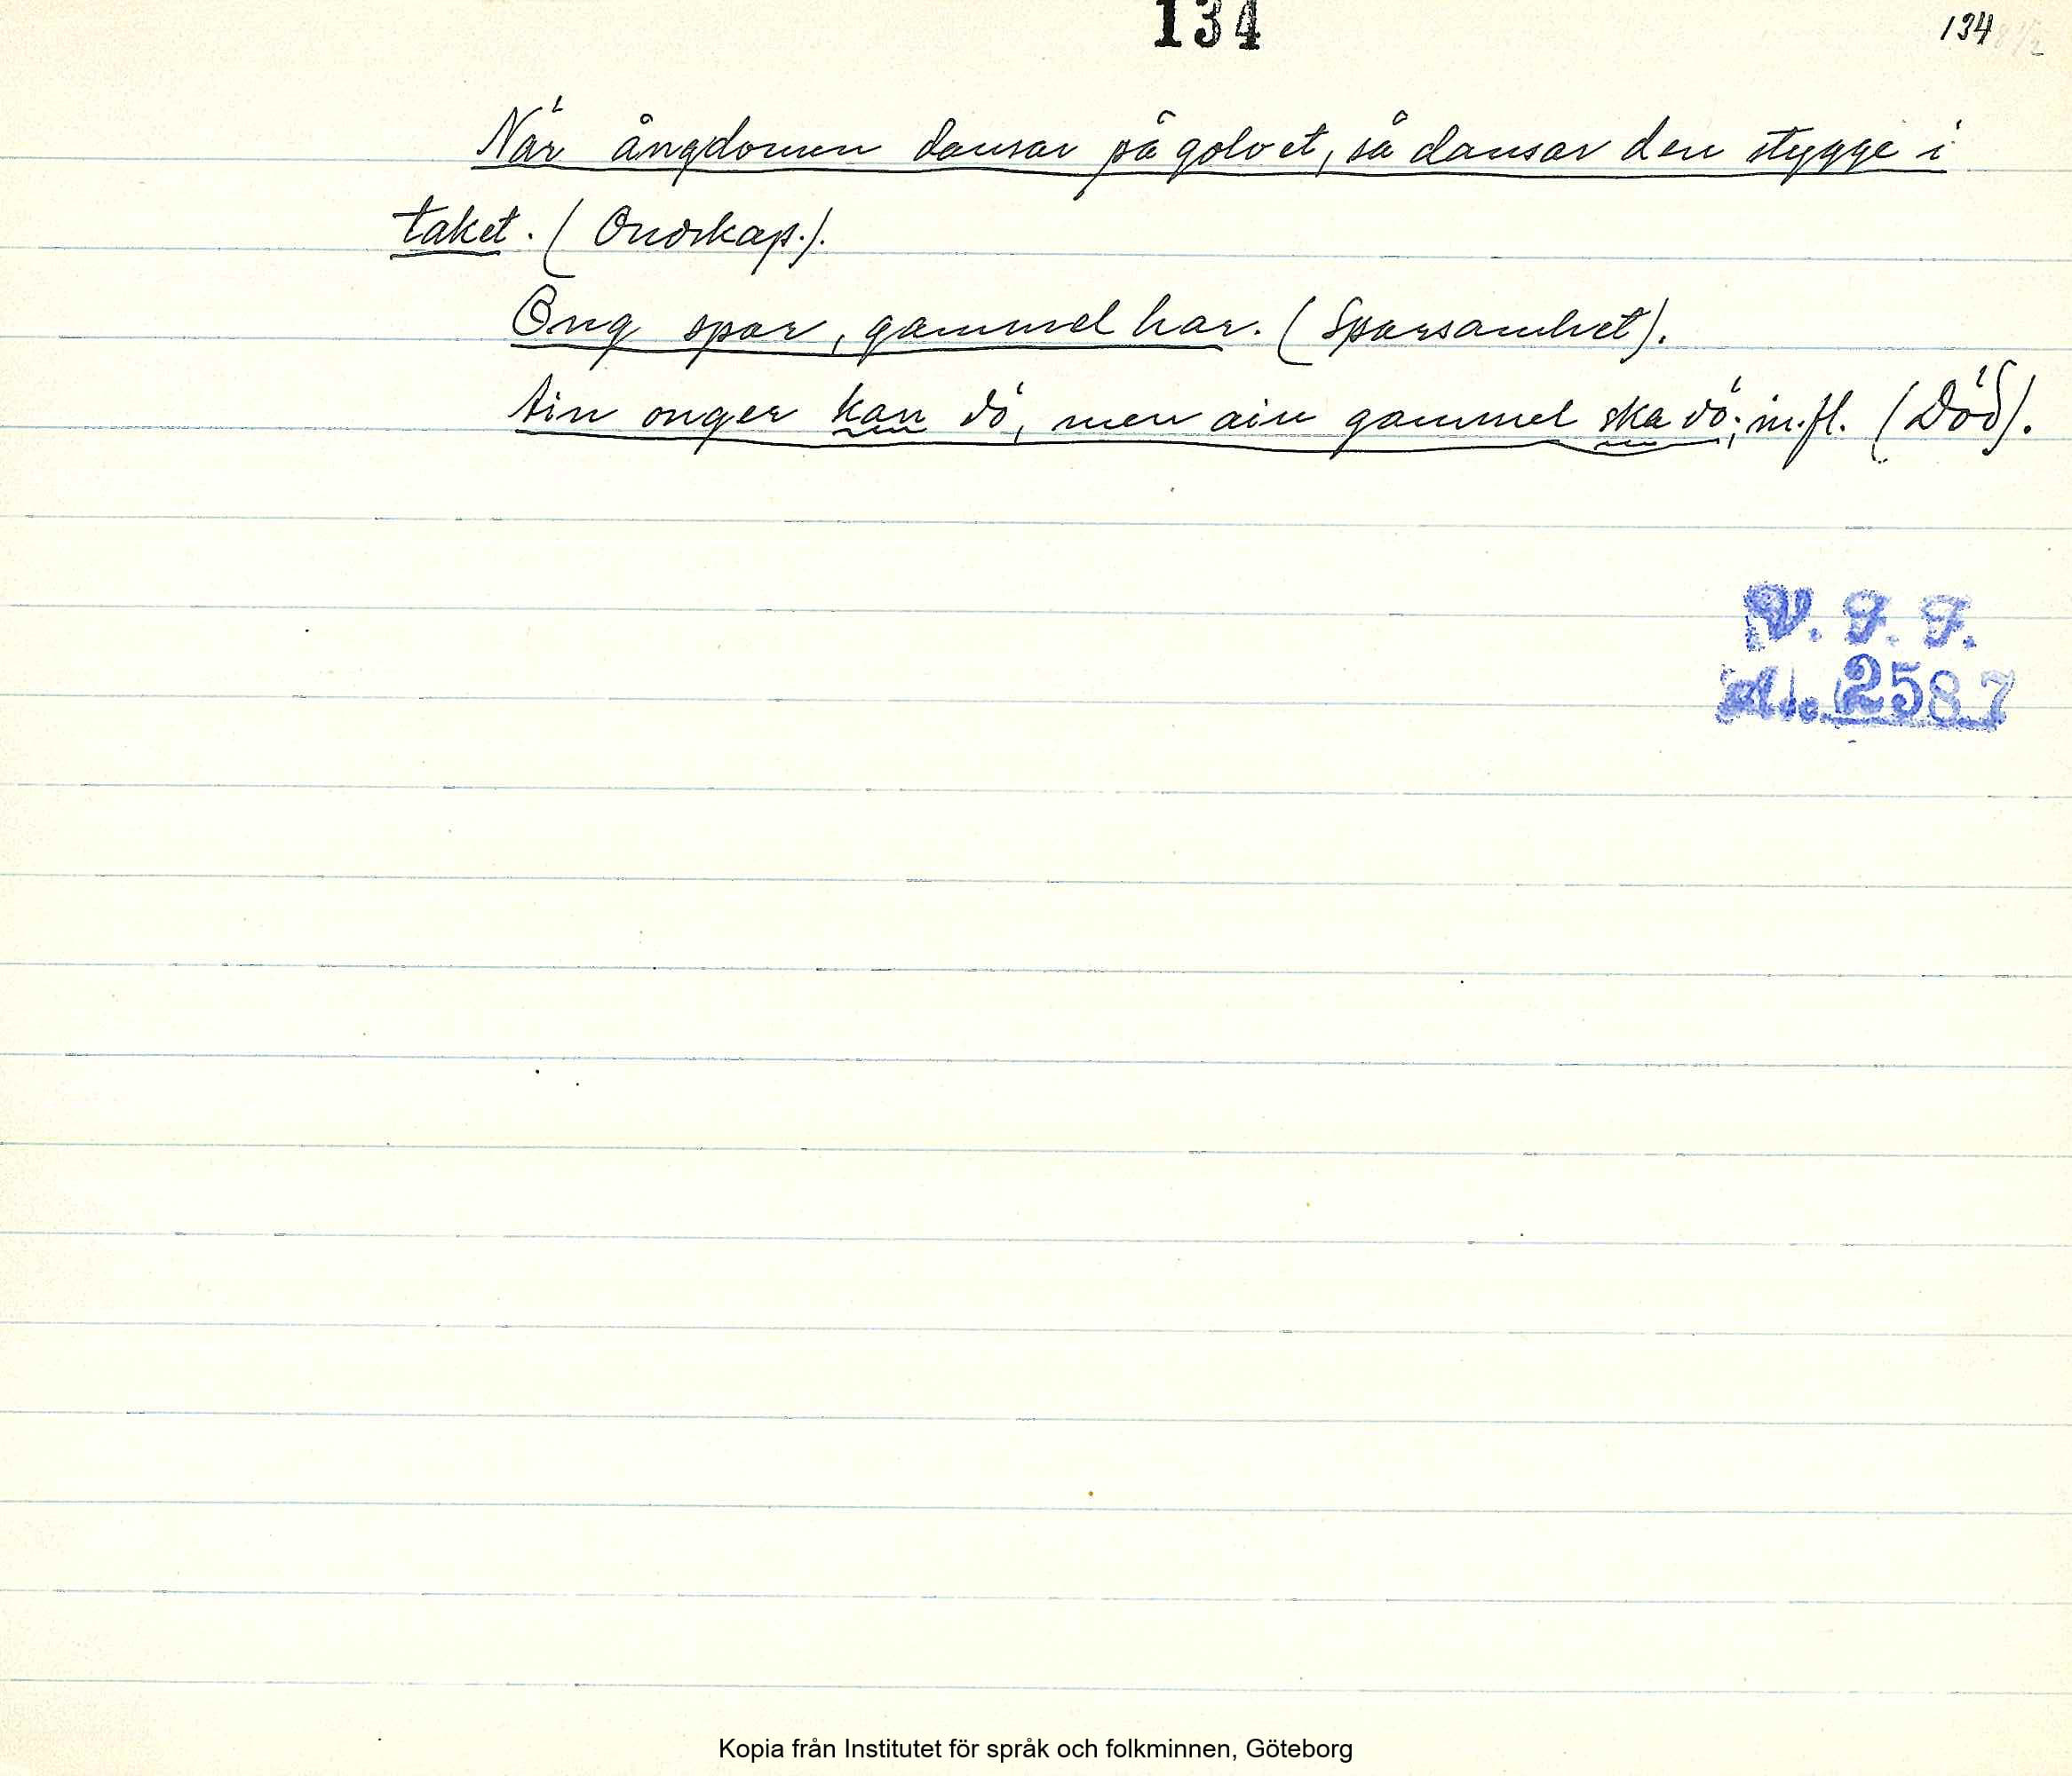 134
134
När ångdomen dansar på golvet, så dansar den stygge i
taket. (Ondskap.).
Ong spar, gammel har. (Sparsamhet).
Ain onger kan dö, men ain gammel ska dö; m.fl. (Död).
V. G. F.
Acc. 2587
Kopia från Institutet för språk och folkminnen, Göteborg